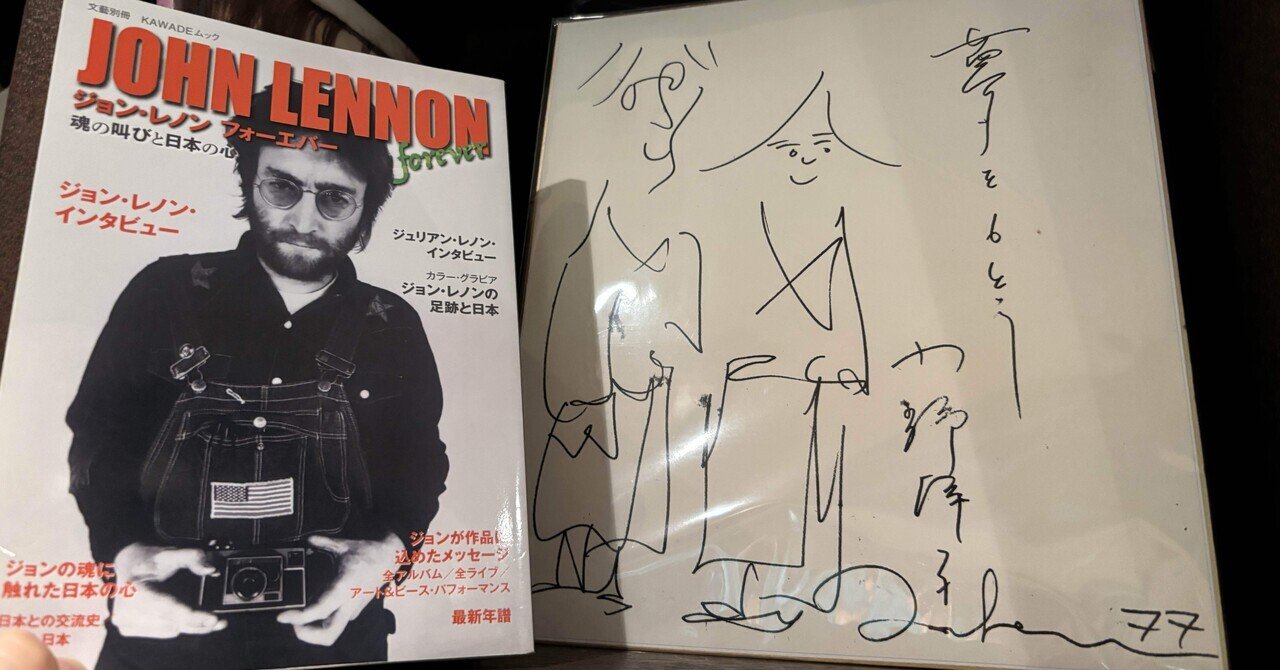 文藝別冊 KAWADEムック
JOHN LENNON
ジョン・レノン フォーエバー
forever
魂の叫びと日本の心
ジョン・レノン・
インタビュー
ジュリアン・レノン・
インタビュー
カラー・グラビア
ジョン・レノンの
足跡と日本
ジョンが作品に
込めたメッセージ
全アルバム/全ライブ/
アート&ピース・パフォーマンス
最新年譜
ジョンの魂に
触れた日本の心
日本との交流史
日本
夢をもとう
小野洋子
77